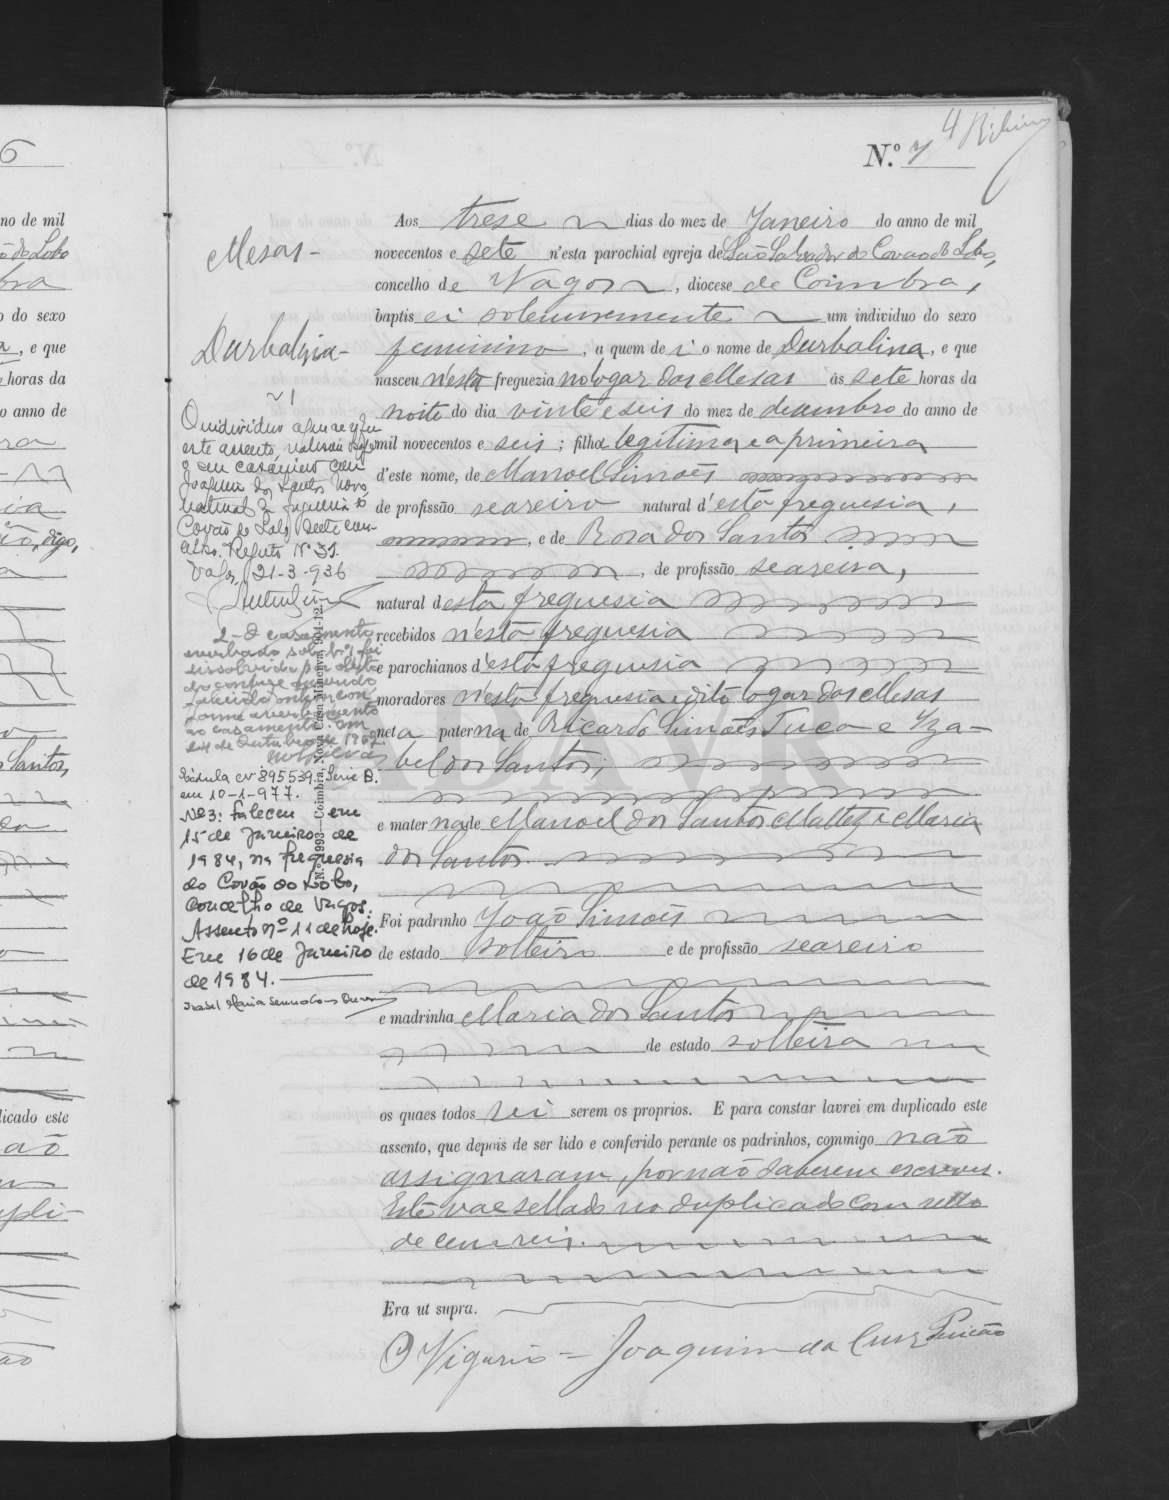 N.º 7
4 Ribeiro
Mesas -
Durbalina -
Aos trese dias do mez de Janeiro do anno de mil
novecentos e sete n'esta parochial egreja de São Salvador do Covão do Lobo,
concelho de Vagos, diocese de Coimbra,
baptisei solemnemente um individuo do sexo
feminino, a quem dei o nome de Durbalina, e que
nasceu n'esta freguezia no logar das Mesas ás sete horas da
noite do dia vinte e seis do mez de dezembro do anno de
mil novecentos e seis; filha legitima e a primeira
d'este nome, de Manoel Simões
de profissão seareiro natural d'esta freguesia,
, e de Rosa dos Santos
, de profissão seareira,
natural d'esta freguesia
recebidos n'esta freguesia
e parochianos d'esta freguesia
moradores n'esta freguesia e dito logar das Mesas
neta paterna de Ricardo Simões Tuca e Iza-
bel dos Santos;
e materna de Manoel dos Santos Mattez e Maria
dos Santos.
Foi padrinho João Simões
de estado solteiro e de profissão seareiro
e madrinha Maria dos Santos
de estado solteira
os quaes todos sei serem os proprios. E para constar lavrei em duplicado este
assento, que depois de ser lido e conferido perante os padrinhos, commigo não
assignaram, por não saberem escrever.
Este vae sellado no duplicado com sello
de cem reis.
Era ut supra.
O Vigario = Joaquim da Cruz
O individuo a que se refere
este assento,
o seu casamento com
Joaquim dos Santos Novo
natural da freguesia do
Covão do Lobo deste con-
celho. Registo Nº 31.
Vagos, 21-3-936
2 - O casamento
averbado sob o nº 1 foi
dissolvido por obito
do conjuge marido
con-
forme averbamento
ao casamento. Em
24 de Outubro de 1962
Cédula nº 895539. Serie B.
em 10-1-977.
Nº 3: Faleceu em
15 de Janeiro de
1984, na freguesia
do Covão do Lobo,
Concelho de Vagos.
Assento nº 11 de hoje.
Em 16 de Janeiro
de 1984.
Isabel Maria
Nova Casa Minerva
ADAVR
no de mil
do Lobo
bra
o do sexo
, e que
horas da
o anno de
digo,
Santos,
licado este